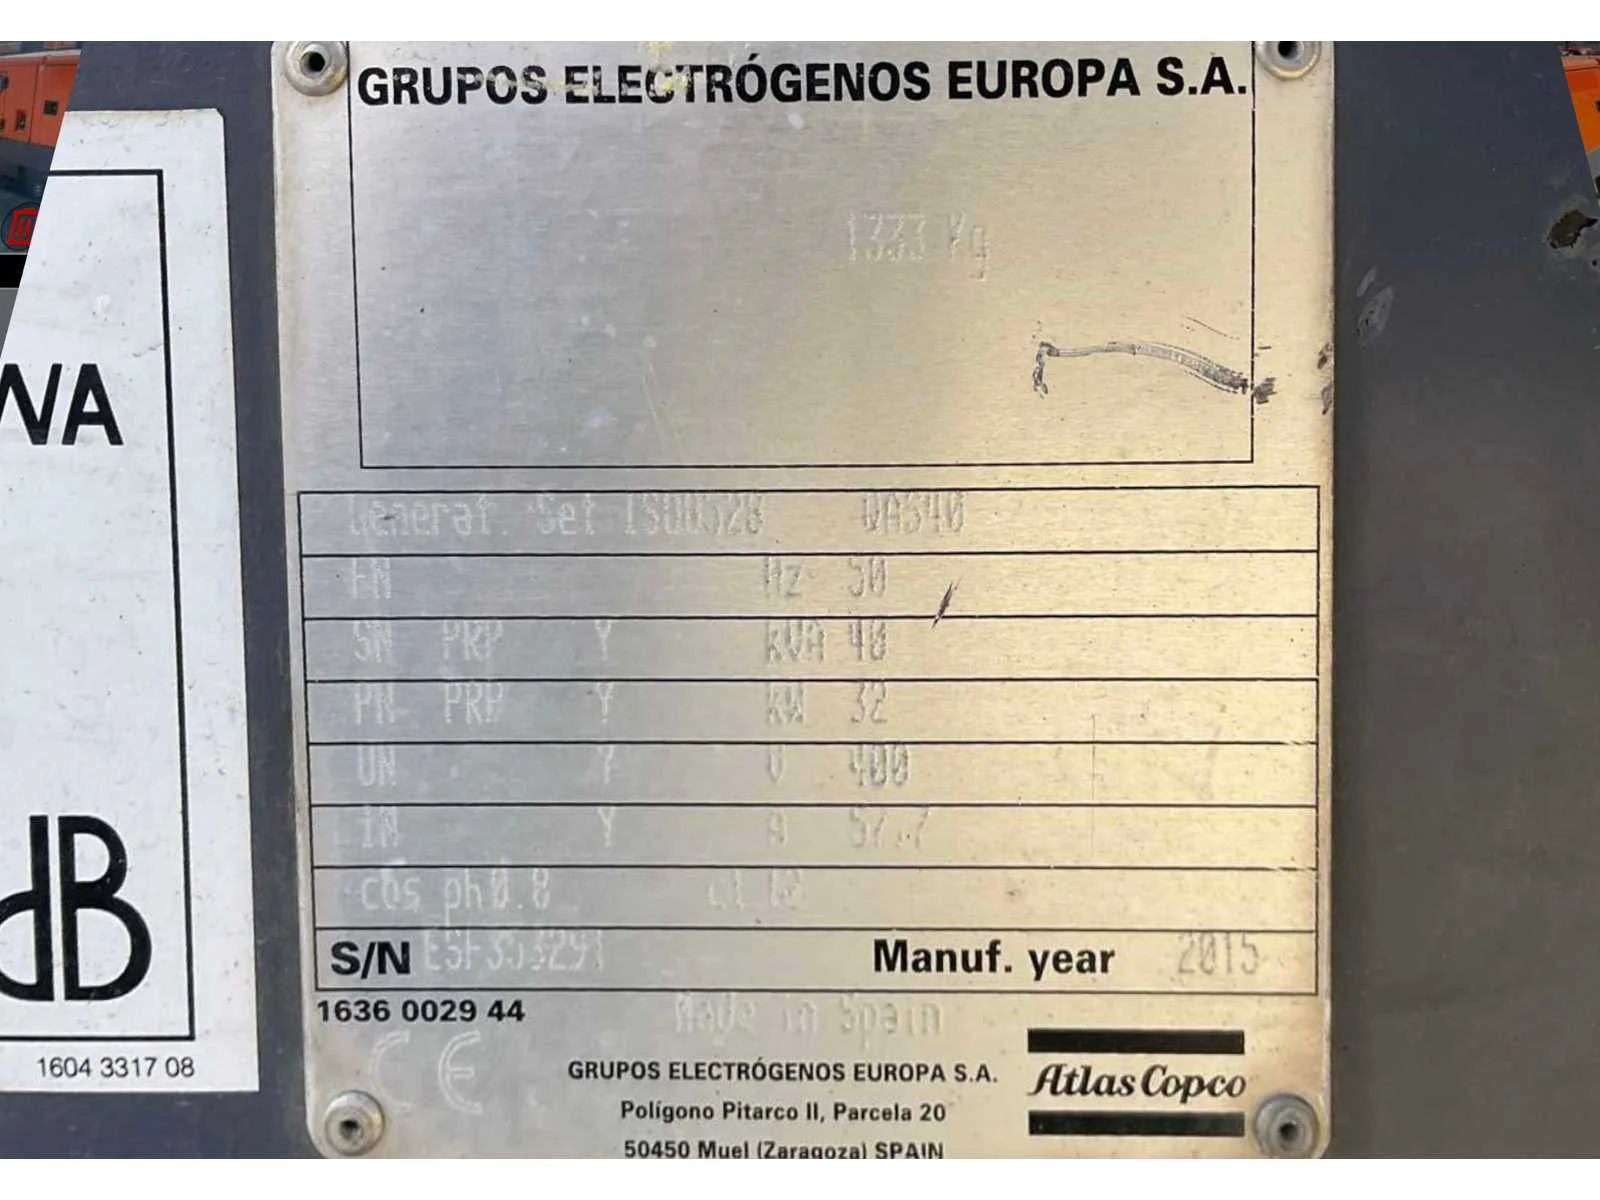 GRUPOS ELECTRÓGENOS EUROPA S.A.
1333 Kg
WA
Generat. Set ISO8528 QAS40
FN Hz 50
SN PRP Y kVA 40
PN PRP Y kW 32
UN Y V 400
IN Y A 57.7
cos ph0.8
S/N ESF353291 Manuf. year 2015
1636 0029 44
Made in Spain
CE
dB
1604 3317 08
GRUPOS ELECTRÓGENOS EUROPA S.A.
Polígono Pitarco II, Parcela 20
50450 Muel (Zaragoza) SPAIN
Atlas Copco